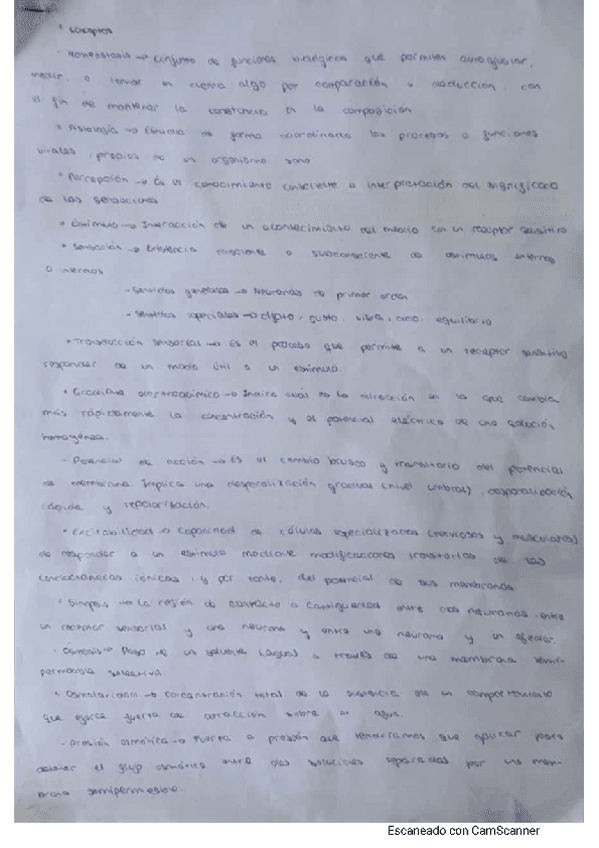 * Conceptos
• Homeostasis → Conjunto de funciones biológicas que permiten autoajustar,
medir, o tomar en cuenta algo por comparación o deducción, con
el fin de mantener la constancia en la composición
• Fisiología → Estudia de forma coordinada los procesos o funciones
vitales, propios de un organismo sano
• Percepción → Es el conocimiento consciente e interpretación del significado
de las sensaciones
• Estímulo → Interacción de un acontecimiento del medio con un receptor sensitivo
• Sensación → Existencia consciente o subconsciente de estímulos externos
o internos
- Sentidos generales → Neuronas de primer orden
- Sentidos especiales → olfato, gusto, vista, oído, equilibrio
• Transducción sensorial → Es el proceso que permite a un receptor sensitivo
responder de un modo útil a un estímulo.
• Gradiente electroquímico → Indica cuál es la dirección en la que cambia
más rápidamente la concentración y el potencial eléctrico de una solución
homogénea.
- Potencial de acción → Es el cambio brusco y transitorio del potencial
de membrana. Implica una despolarización gradual (nivel umbral), despolarización
rápida y repolarización.
• Excitabilidad → Capacidad de células especializadas (nerviosas y musculares)
de responder a un estímulo mediante modificaciones transitorias de las
conductancias iónicas, y por tanto, del potencial de sus membranas
• Sinapsis → La región de contacto o contigüedad entre dos neuronas, entre
un receptor sensorial y una neurona y entre una neurona y un efector.
- Osmosis → Paso de un solvente (agua) a través de una membrana semi-
permeable selectiva.
• Osmolaridad → Concentración total de la sustancia de un compartimento
que ejerce fuerza de atracción sobre el agua.
- Presión osmótica → Fuerza o presión que tendríamos que aplicar para
detener el flujo osmótico entre dos soluciones separadas por una mem-
brana semipermeable.
Escaneado con CamScanner